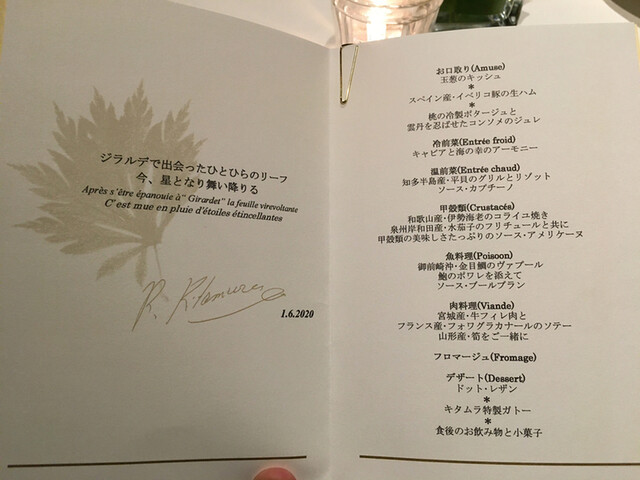 ジラルデで出会ったひとひらのリーフ
今、星となり舞い降りる
Après s'être épanouie à "Girardet" la feuille virevoltante
C'est mue en pluie d'étoiles étincellantes
R. Kitamura
1.6.2020
お口取り(Amuse)
玉葱のキッシュ
*
スペイン産・イベリコ豚の生ハム
*
桃の冷製ポタージュと
雲丹を忍ばせたコンソメのジュレ
冷前菜(Entrée froid)
キャビアと海の幸のアーモニー
温前菜(Entrée chaud)
知多半島産・平貝のグリルとリゾット
ソース・カプチーノ
甲殻類(Crustacés)
和歌山産・伊勢海老のコライユ焼き
泉州岸和田産・水茄子のフリチュールと共に
甲殻類の美味しさたっぷりのソース・アメリケーヌ
魚料理(Poisoon)
御前崎沖・金目鯛のヴァプール
鮑のポワレを添えて
ソース・ブールブラン
肉料理(Viande)
宮城産・牛フィレ肉と
フランス産・フォワグラカナールのソテー
山形産・筍をご一緒に
フロマージュ(Fromage)
デザート(Dessert)
ドット・レザン
*
キタムラ特製ガトー
*
食後のお飲み物と小菓子